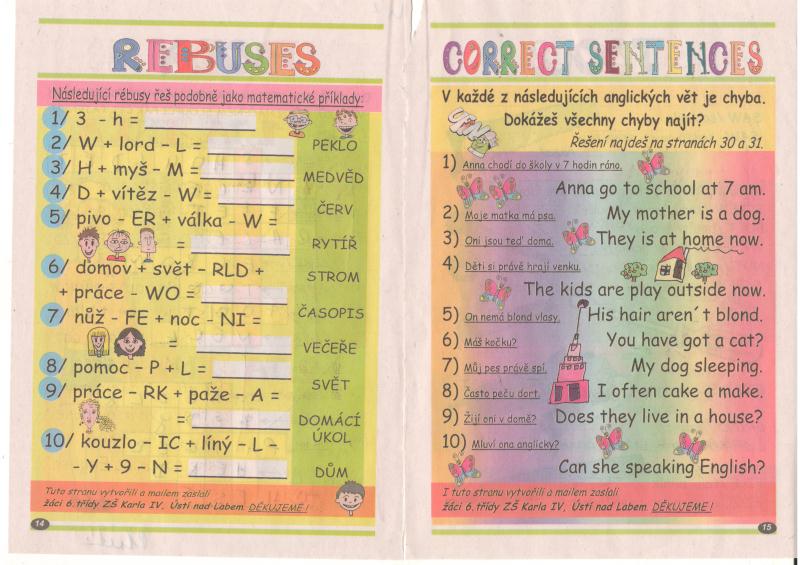 REBUSES
Následující rébusy řeš podobně jako matematické příklady:
1/ 3 - h =
2/ W + lord - L =
3/ H + myš - M =
4/ D + vítěz - W =
5/ pivo - ER + válka - W =
=
6/ domov + svět - RLD +
+ práce - WO =
7/ nůž - FE + noc - NI =
=
8/ pomoc - P + L =
9/ práce - RK + paže - A =
=
10/ kouzlo - IC + líný - L -
- Y + 9 - N =
PEKLO
MEDVĚD
ČERV
RYTÍŘ
STROM
ČASOPIS
VEČEŘE
SVĚT
DOMÁCÍ
ÚKOL
DŮM
Tuto stranu vytvořili a mailem zaslali
žáci 6. třídy ZŠ Karla IV, Ústí nad Labem. DĚKUJEME!
14
CORRECT SENTENCES
V každé z následujících anglických vět je chyba.
Dokážeš všechny chyby najít?
Řešení najdeš na stranách 30 a 31.
1) Anna chodí do školy v 7 hodin ráno.
Anna go to school at 7 am.
2) Moje matka má psa. My mother is a dog.
3) Oni jsou teď doma. They is at home now.
4) Děti si právě hrají venku.
The kids are play outside now.
5) On nemá blond vlasy. His hair aren´t blond.
6) Máš kočku? You have got a cat?
7) Můj pes právě spí. My dog sleeping.
8) Často peču dort. I often cake a make.
9) Žijí oni v domě? Does they live in a house?
10) Mluví ona anglicky?
Can she speaking English?
I tuto stranu vytvořili a mailem zaslali
žáci 6. třídy ZŠ Karla IV, Ústí nad Labem. DĚKUJEME!
15